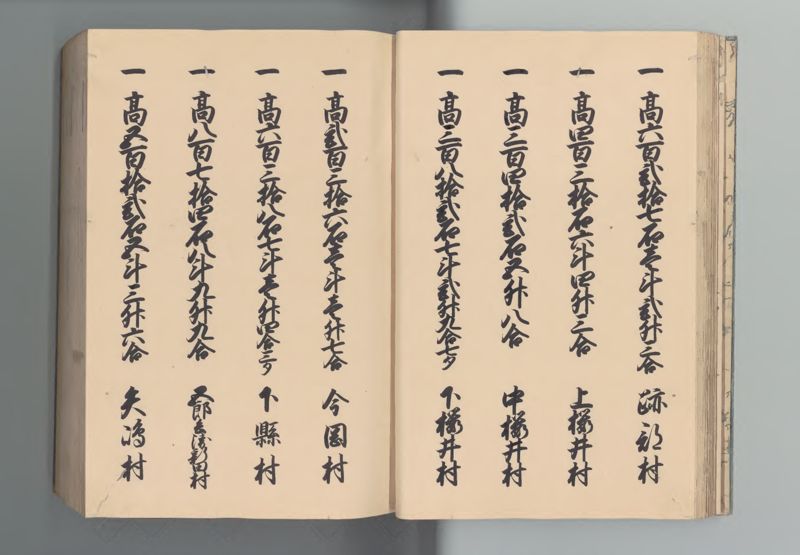 一 高六百弐拾七石壱斗弐升三合 跡部村
一 高四百三拾石六斗四升三合 上桜井村
一 高三百四拾弐石五升八合 中桜井村
一 高三百八拾弐石七斗弐升九合七夕 下桜井村
一 高弐百三拾六石壱斗壱升七合 今岡村
一 高六百三拾八石七斗壱升四合三夕 下縣村
一 高八百七拾四石八斗九升九合 五郎兵衛新田村
一 高五百拾弐石五斗三升六合 矢嶋村